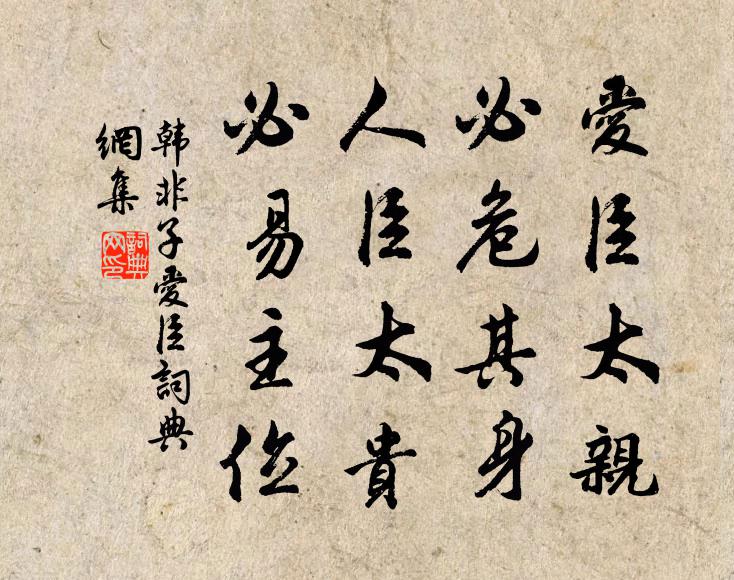 愛臣太親
必危其身
人臣太貴
必易主位
韩非子愛臣詞典
網集
詞典
网印